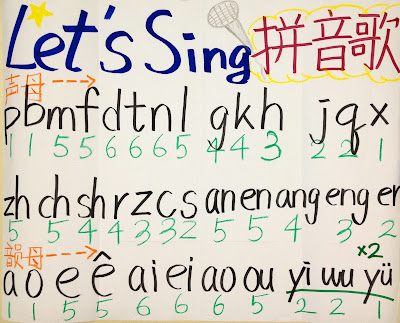 Let's Sing 拼音歌
声母
pbmfdtnl gkh jqx
1 1 5 5 6 6 6 5 4 4 3 2 2 1
zh ch sh r z c s an en ang eng er
5 5 4 4 3 3 2 5 5 4 3 2
韻母 ×2
a o e ê ai ei ao ou yi wu yü
1 1 5 5 6 6 6 5 2 2 1